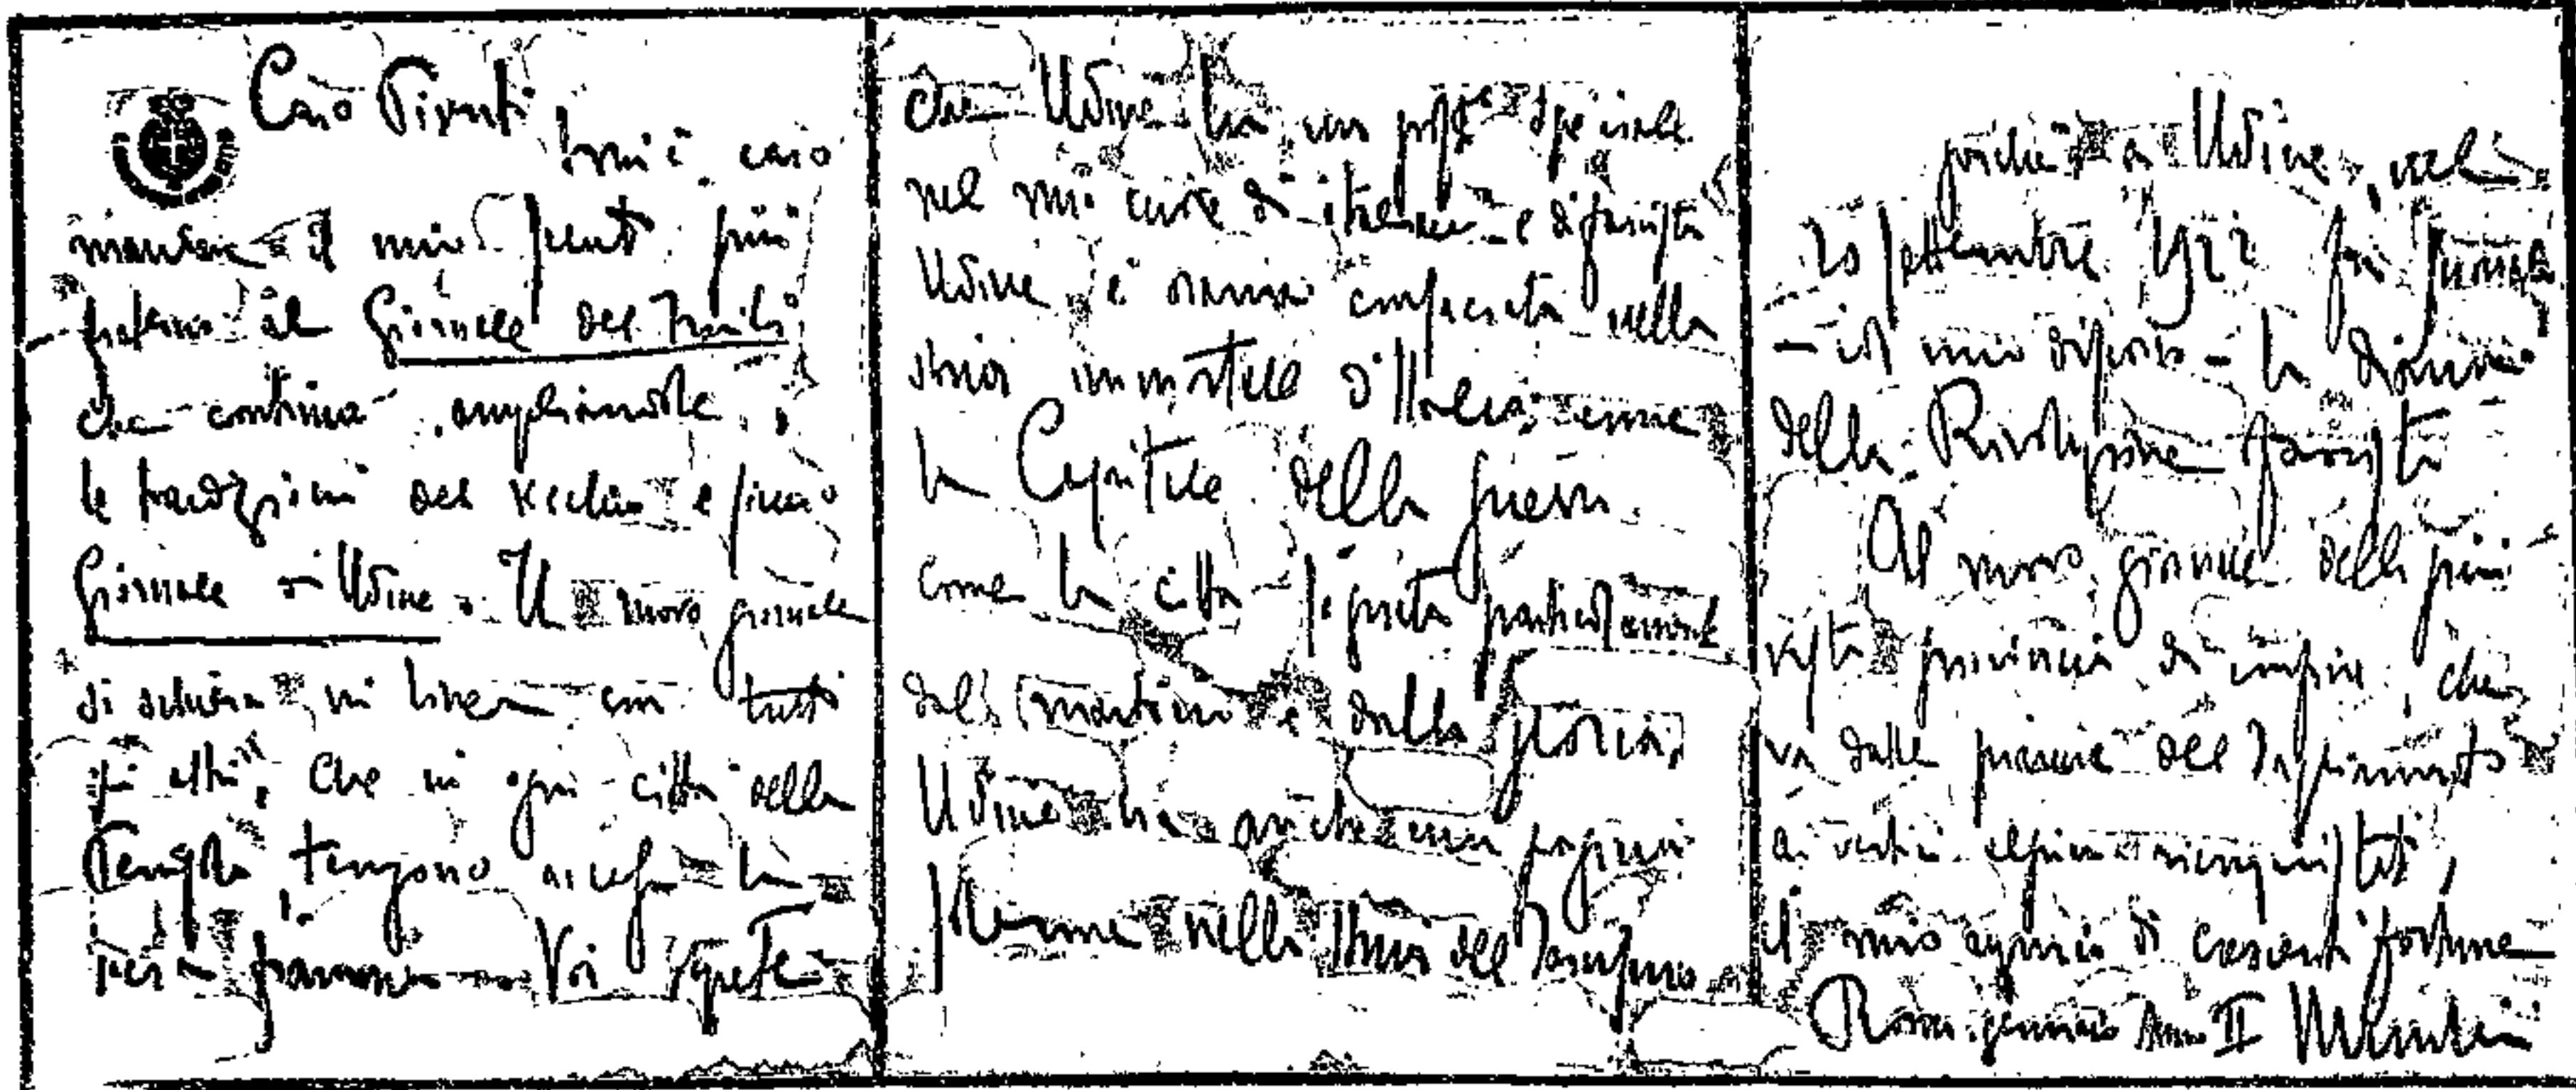 Caro Pisenti,
mi è caro
mandare il mio saluto più
fraterno al Giornale del Friuli
che continua, ampliandole,
le tradizioni del vecchio e
Giornale di Udine. Il nuovo giornale
si schiera in linea con tutti
gli altri, che in ogni città della
Penisola, tengono accesa la
fiamma. Voi sapete
che Udine ha un posto speciale
nel mio cuore di italiano e di fascista
Udine è oramai consacrata nella
storia immortale d'Italia come
la Capitale della guerra.
come la città segnata particolarmente
dal martirio e dalla gloria,
Udine ha anche una pagina
solenne nella storia del Fascismo
poiché a Udine, nel
20 settembre 1922 fu
- col mio discorso - la
della Rivoluzione fascista
Al nuovo giornale della più
vasta provincia di confine, che
va dalle pianure del Tagliamento
ai vertici alpini riconquistati,
il mio augurio di crescenti fortune
Roma gennaio Anno II Mussolini